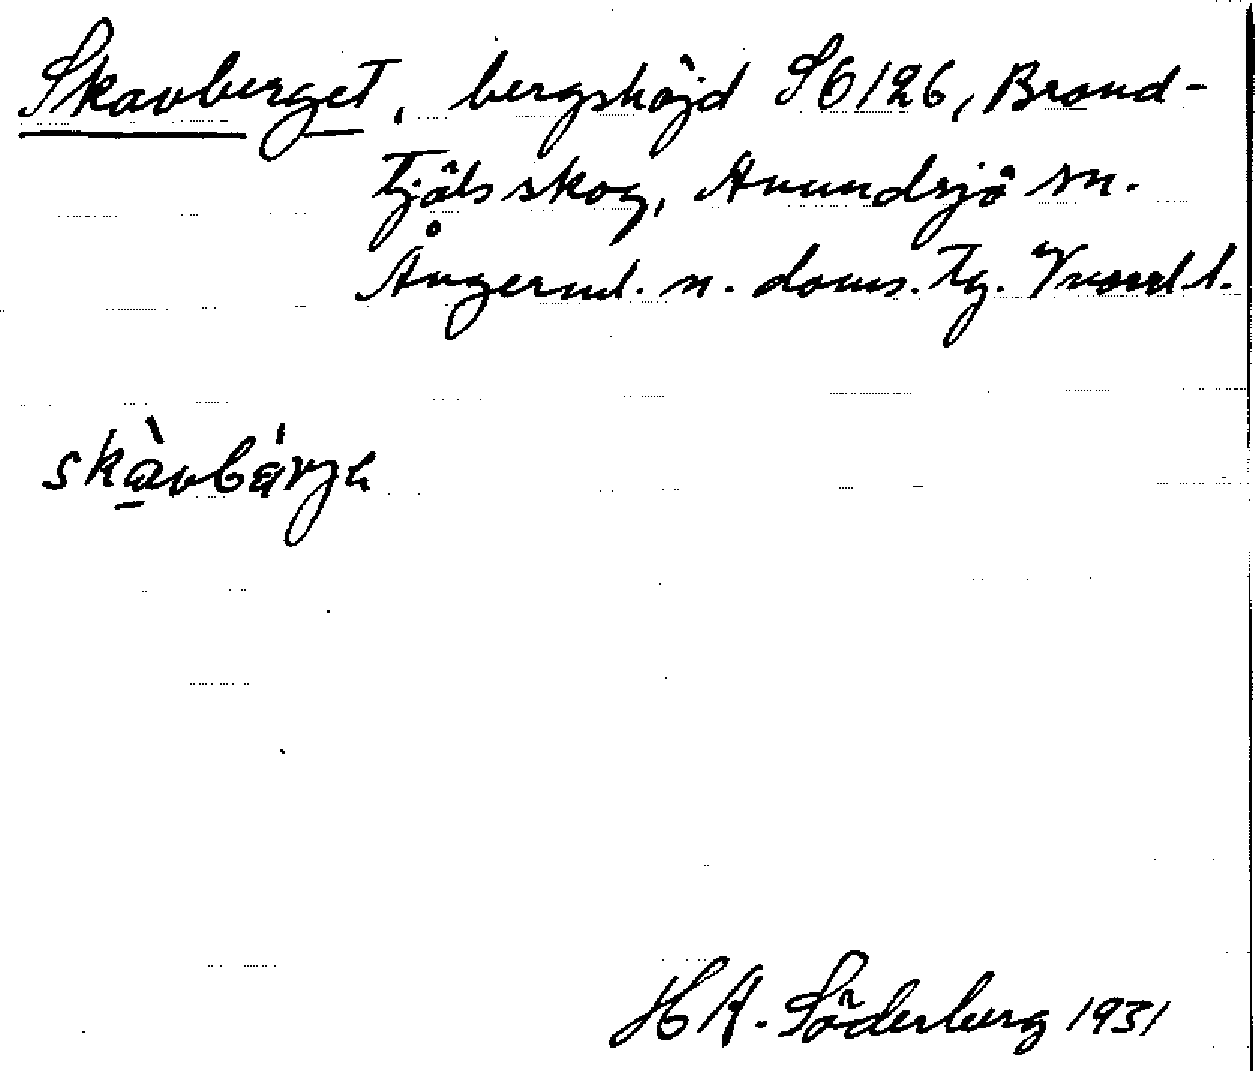 Skavberget, bergshöjd S6126, Brand-
tjäls skog, Anundsjö sn.
Ångerml. n. doms. tg. Vnorrl l.
skàvbárjɛ
H A. Söderberg 1931